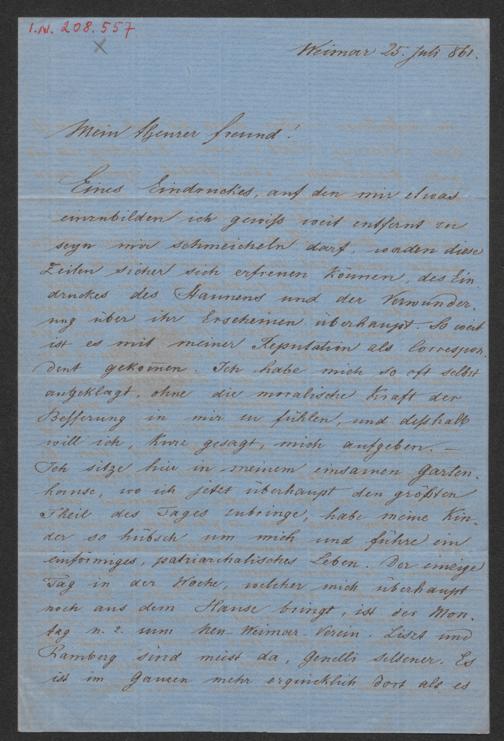 I.N. 208.557
Weimar 25. Juli 861.
Mein theurer Freund!
Eines Eindruckes, auf den mir etwas
einzubilden ich gewiß weit entfernt zu
seyn mir schmeicheln darf, werden diese
Zeilen sicher sich erfreuen können, des Ein
druckes des Staunens und der Verwunder
ung über ihr Erscheinen überhaupt. So weit
ist es mit meiner Reputation als Correspon
dent gekom̄en. Ich habe mich so oft selbst
angeklagt, ohne die moralische Kraft der
Besserung in mir zu fühlen, und deßhalb
will ich, kurz gesagt, mich aufgeben. –
Ich sitze hier in meinem einsamen Garten-
hause, wo ich jetzt überhaupt den größten
Theil des Tages zubringe, habe meine Kin-
der so hübsch um mich und führe ein
einförmiges, patriarchalisches Leben. Der einzige
Tag in der Woche, welcher mich überhaupt
noch aus dem Hause bringt, ist der Mon-
tag n. z. zum Neu-Weimar-Verein. Liszt und
Ramberg sind meist da, Genelli seltener. Es
ist im Ganzen mehr erquicklich dort als es